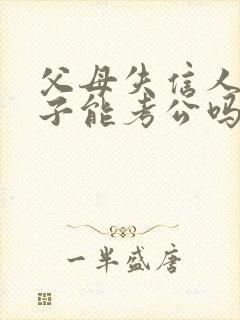 父母失信人
子能考公吗
一半盛唐